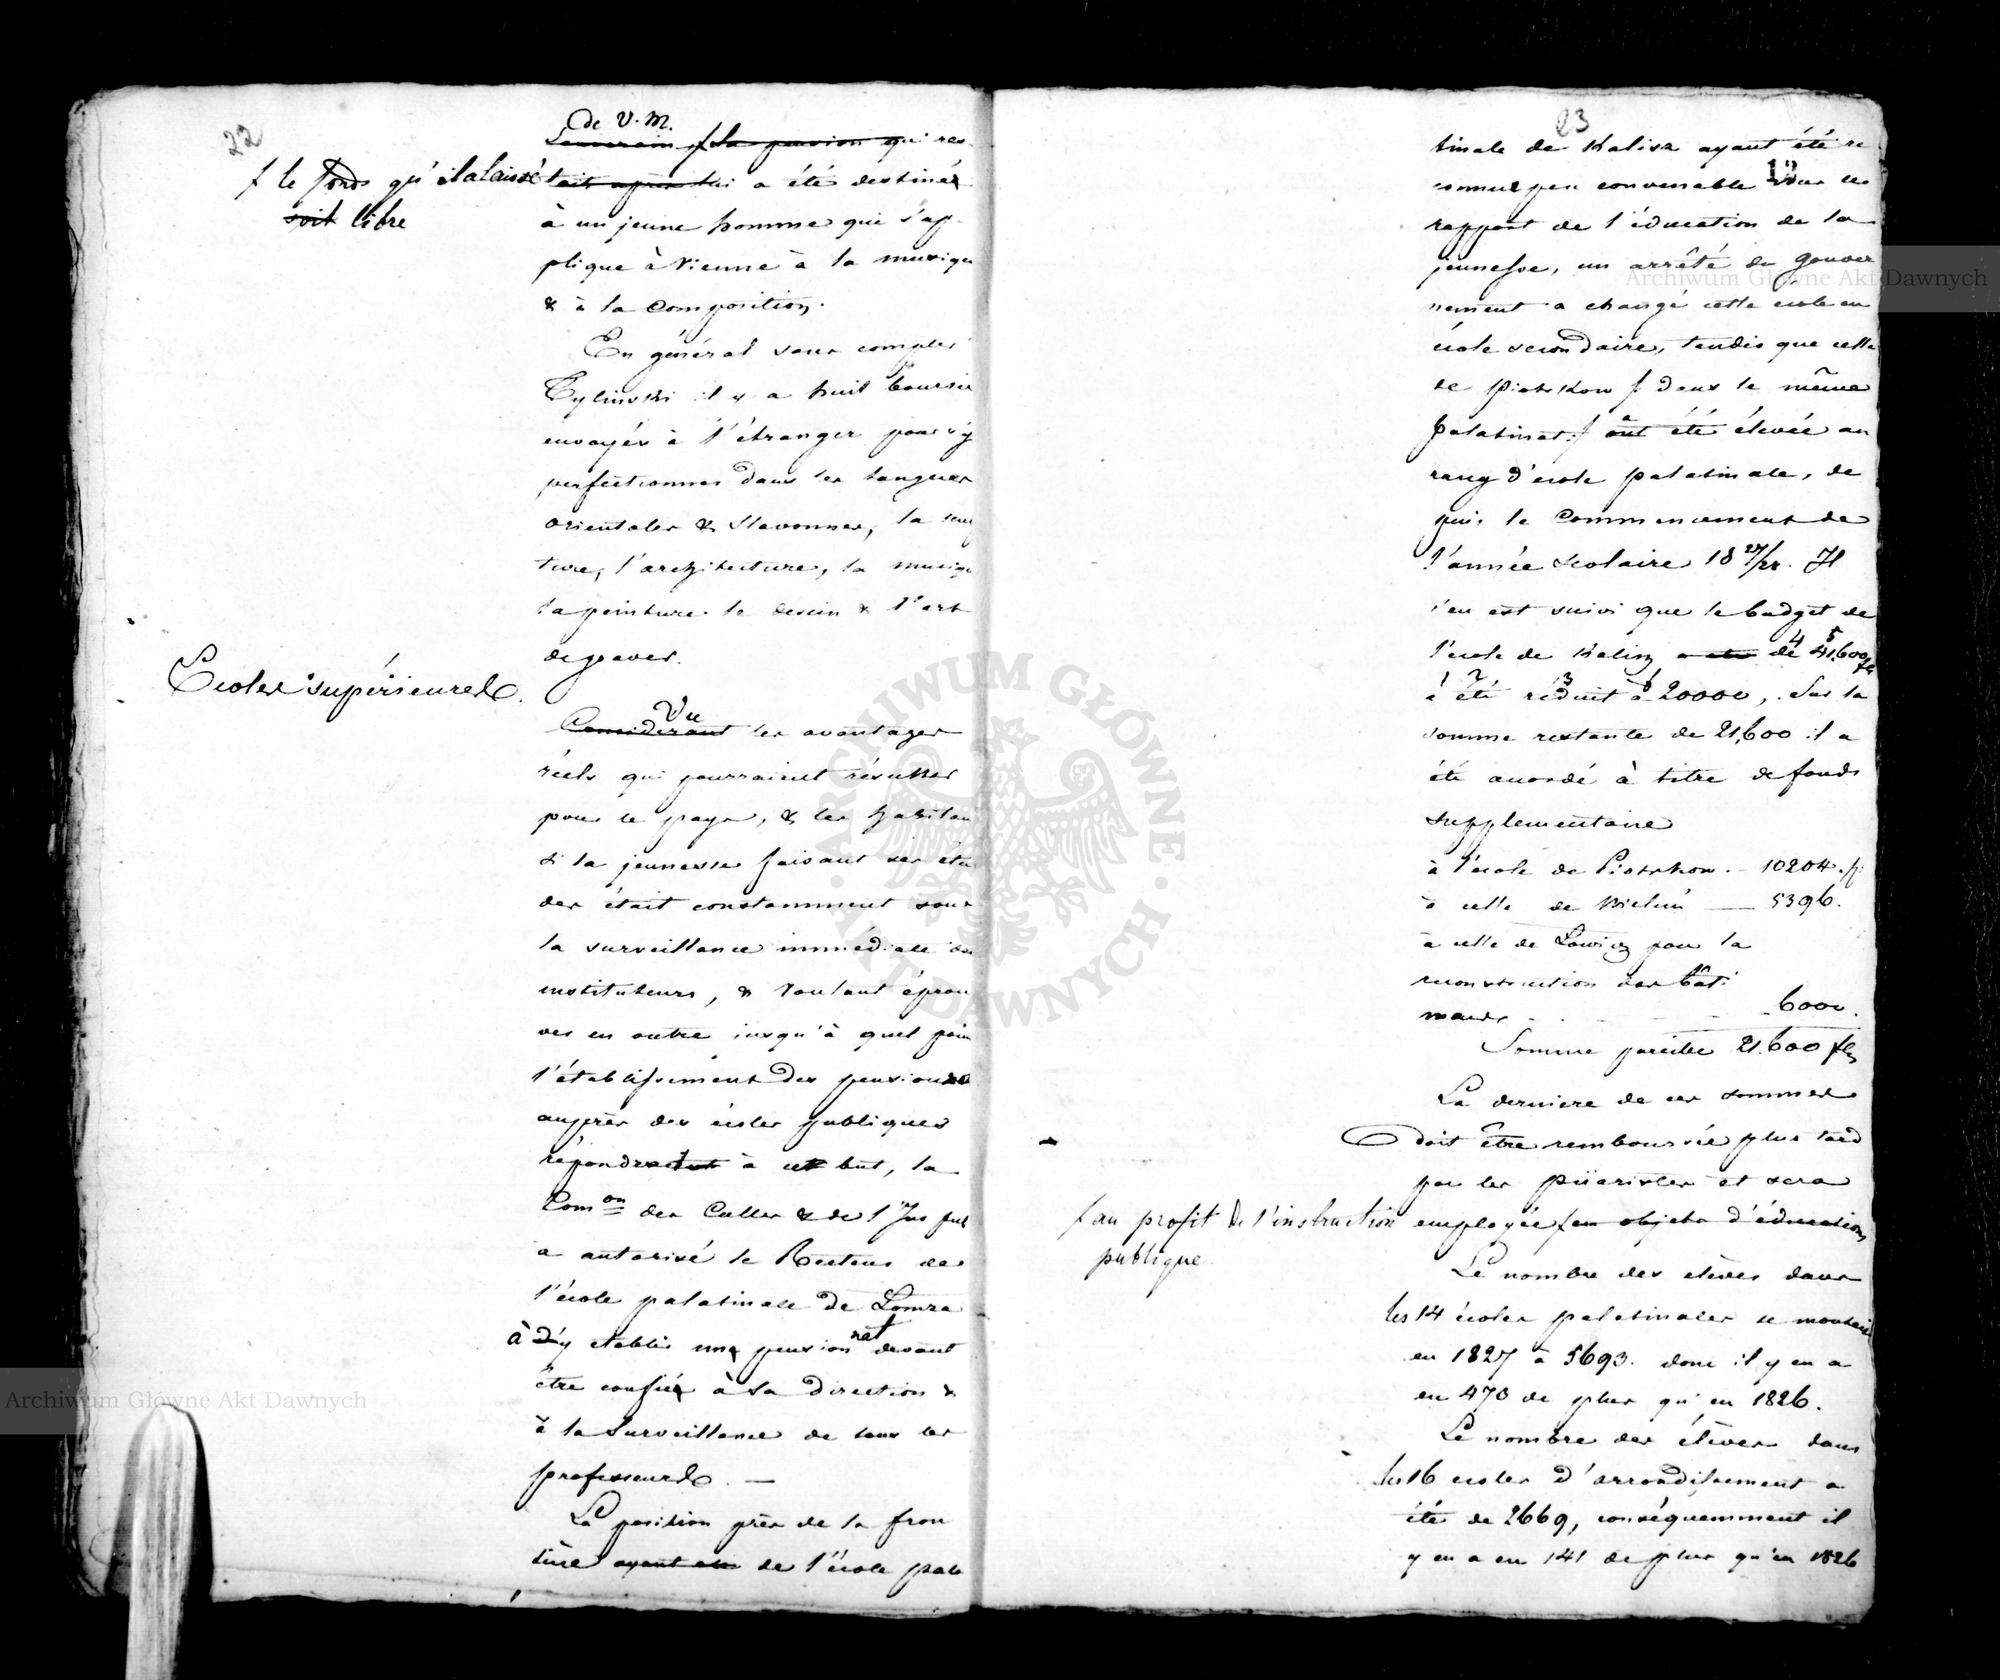 22
de V. M.
Souverain f la pension qui res
f le fonds qu'il a laissé
soit libre
tait après lui a été destiné
à un jeune homme qui s'ap-
plique à Vienne à la musique
& à la composition.
En général sans compter
Tyliński il y a huit boursie
envoyés à l'étranger pour s'y
perfectionner dans les langues
orientales & slavonnes, la
ture, l'architecture, la musiqu
la peinture le dessin & l'art
de graver.
Ecoles supérieures.
Vu
Considérant les avantages
réels qui pourraient résulter
pour le pays, & les habitan
si la jeunesse faisant ses étu
des était constamment sous
la surveillance immédiate des
instituteurs, & voulant éprou
ver en outre jusqu'à quel poin
l'établissement des pensions
auprès des écoles publiques
répondrait à cet but, la
Comon des Cultes & de l'Ins pub
a autorisé le Recteur de
l'école palatinale de Lomza
à d'y etablir une pensionnat devant
être confiée à sa direction &
à la Surveillance de tous les
professeurs. —
La position près de la fron
tière ayant été de l'école pala
23
tinale de Kalisz ayant été re
connue peu convenable sous le
rapport de l'éducation de la
jeunesse, un arrêté du gouver
nement a changé cette école en
école secondaire, tandis que celle
de Piotrkow f dans le même
palatinat f a ont été élevée au
rang d'école palatinale, de
puis le commencement de
l'année scolaire 18 27/28. Il
s'en est suivi que le budget de
l'école de Kalisz a été de 41,600 fl
4 5
1 2 3 6
a été réduit à 20000, Sur la
somme restante de 21,600 il a
été accordé à titre de fonds
supplementaire
à l'école de Piotrkow. - 10204. fl:
à celle de Wieluń — 5396.
à celle de Lowicz pour la
reconstruction des bâti
mens - - - - 6000.
Somme pareille 21.600 fl
La derniere de ces sommes
doit être remboursée plus tard
par les Piiaristes et sera
f au profit de l'instruction
publique.
employée f en objets d'éducation
Le nombre des élèves dans
les 14 écoles palatinales se montait
en 1827 à 5693. donc il y en a
eu 470 de plus qu'en 1826.
Le nombre des élèves dans
les 16 ecoles d'arrondissement a
été de 2669, conséquemment il
y en a eu 141 de plus qu'en 1826
ARCHIWUM GŁÓWNE · AKT DAWNYCH ·
Archiwum Główne Akt Dawnych
Archiwum Główne Akt Dawnych